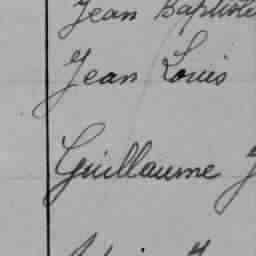 Jean Baptiste
Jean Louis
Guillaume J